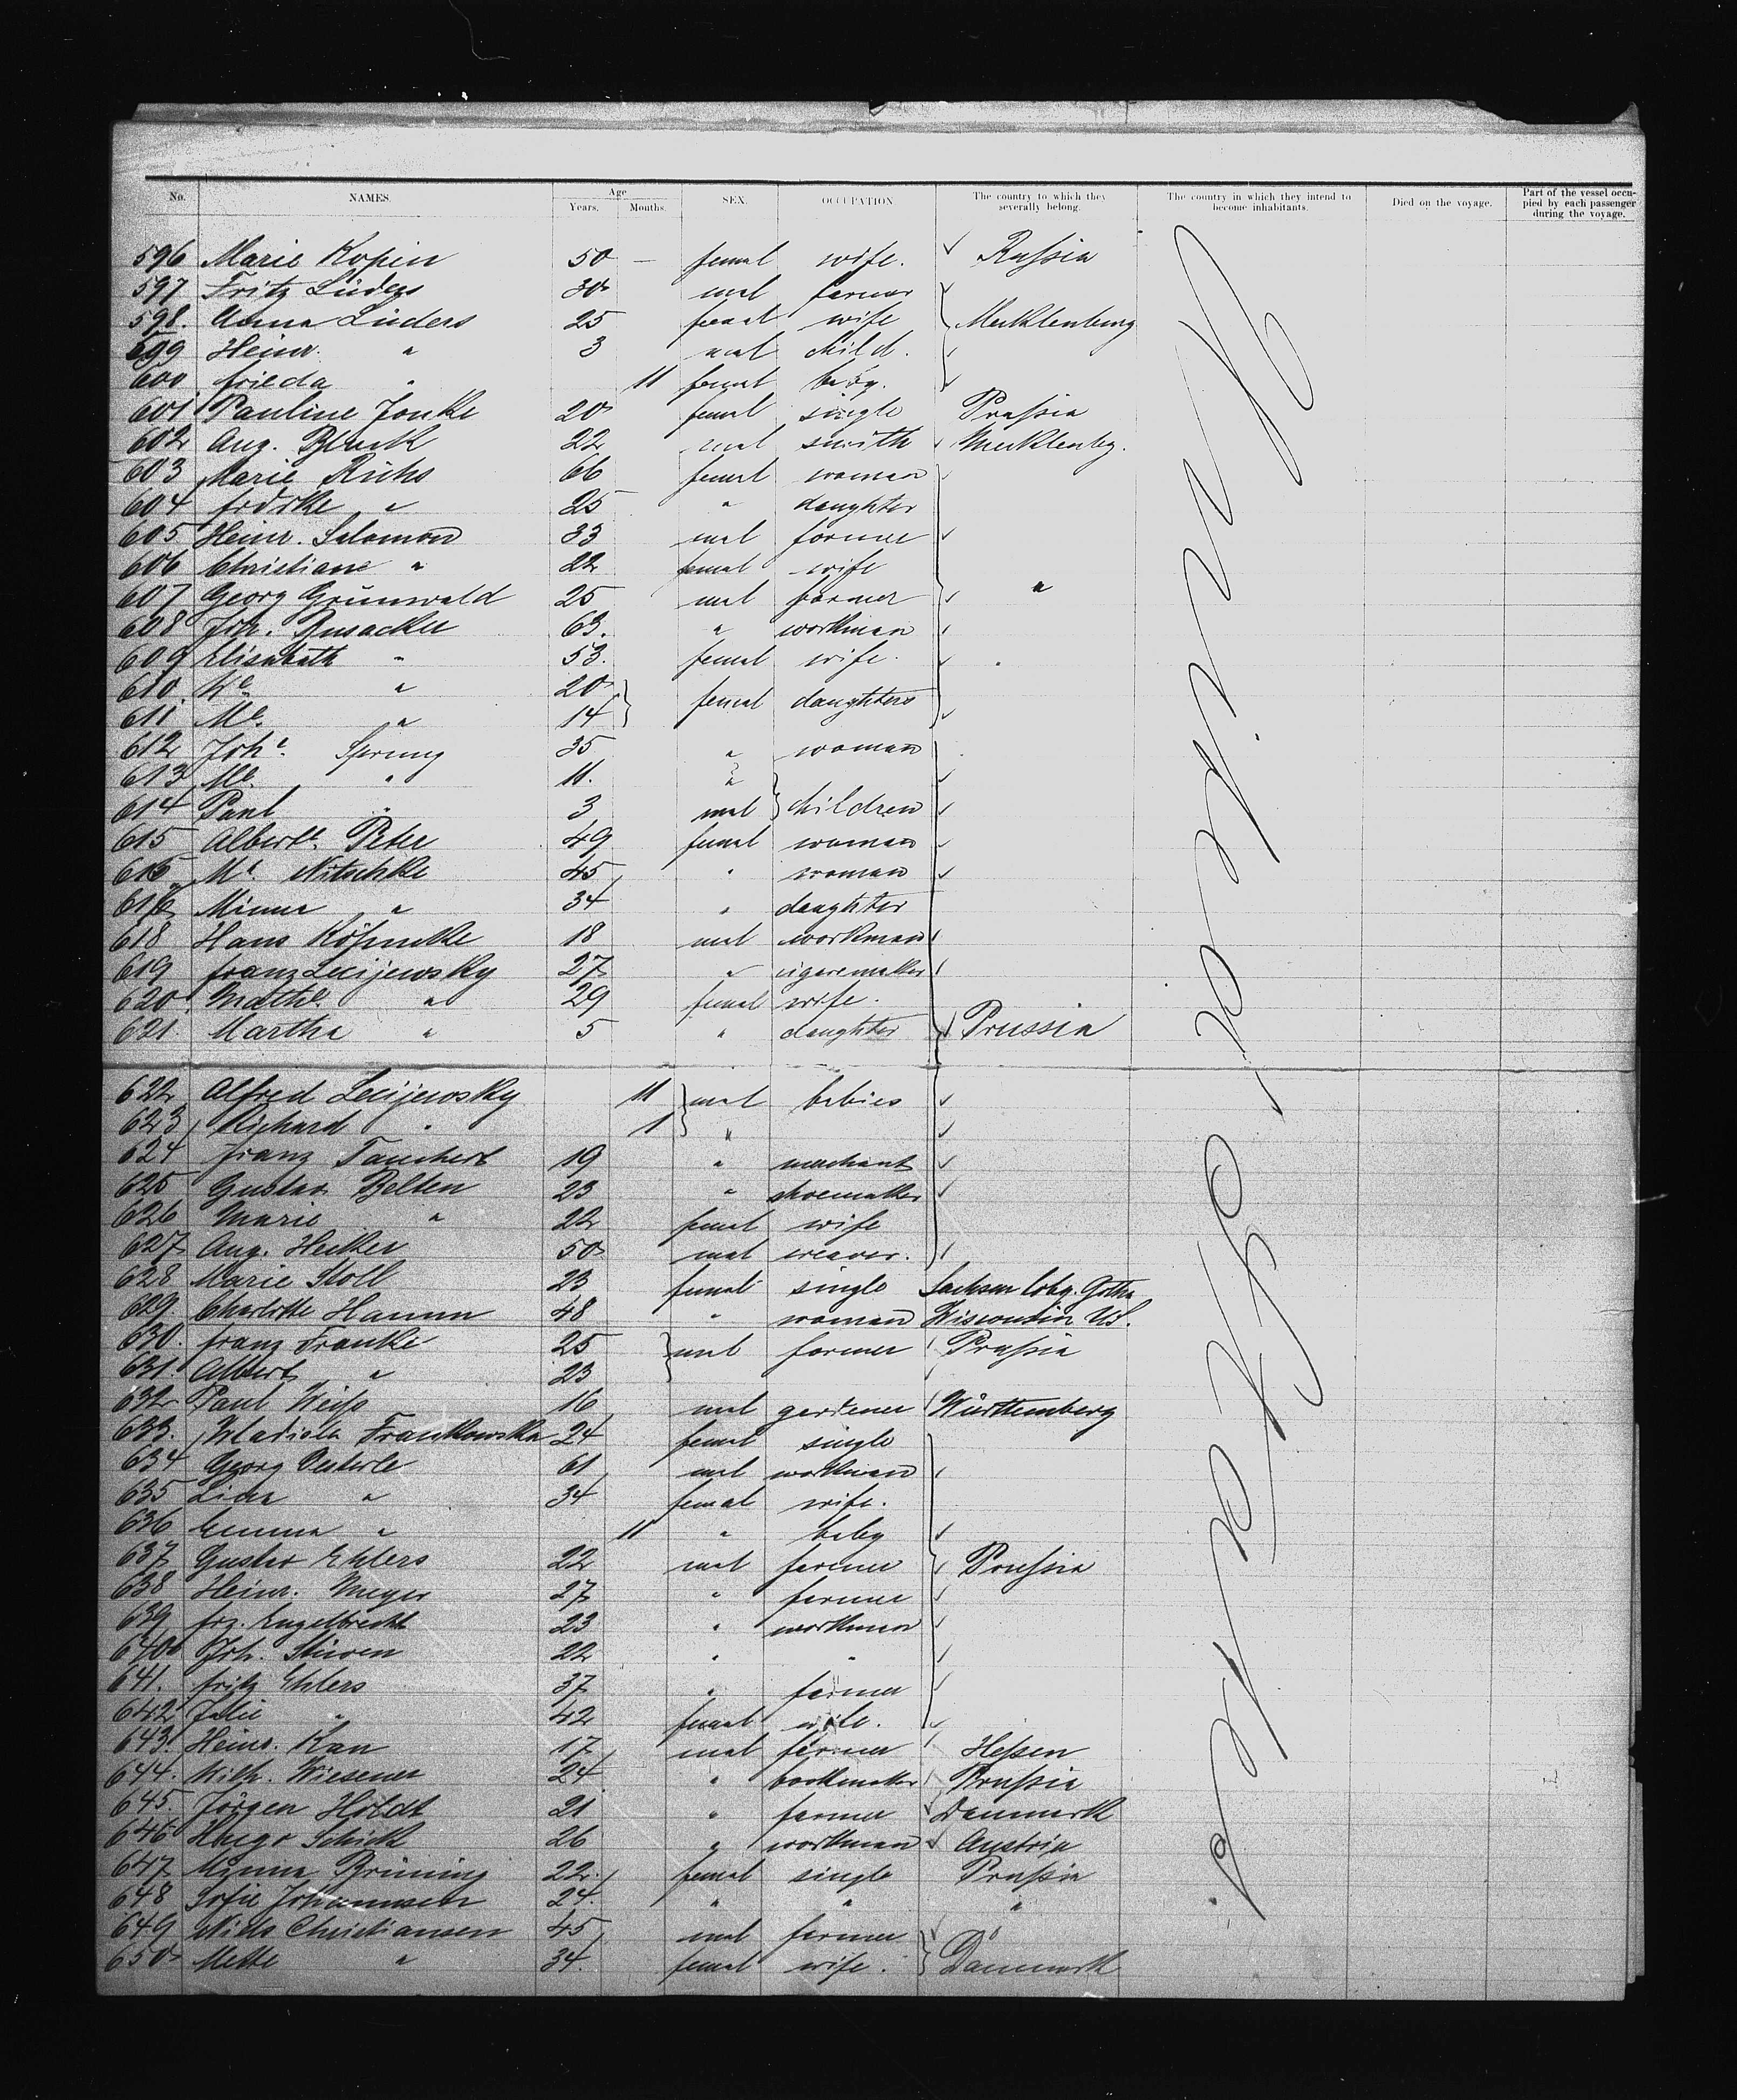 No. NAMES. Age Years. Months. SEX. OCCUPATION The country to which they severally belong. The country in which they intend to become inhabitants. Died on the voyage. Part of the vessel occupied by each passenger during the voyage.
596 Marie Kopin 50 — femal wife. Russia
597 Fritz Lüders 30 mal farmer
598. Anna Lüders 25 femal wife Mecklenburg
599 Heinr. " 3 mal child.
600 Frieda " 11 femal baby.
601 Pauline Jonke 20 femal single Prussia
602 Aug. 22 mal smith Mecklenbg.
603 Marie 66 femal woman
604 Frdrke " 25 " daughter
605 Heinr. Salomon 33 mal farmer
606 Christiane " 22 femal wife
607 Georg Grünwald 25 mal farmer "
608 Joh. Busacker 63. " workman
609 Elisabeth " 53. femal wife.
610 " 20 femal daughters
611. Me. " 14
612 Johe. Sprung 35 " woman
613 Me. " 11. "
614 Paul " 3 mal children
615 Alberte. Peter 49 femal woman
616 Me. Nitschke 45 " woman
617 Minna " 34 " daughter
618 Hans Köpmcke 18 mal workman
619 Franz Lecijewsky 27 " cigaremaker
620 Mathe. " 29 femal wife.
621 Martha " 5 " daughter Prussia
622 Alfred Lecijewsky 11 mal babies
623 Richard " 1 "
624 Franz Tauchert 19 " merchant
625 Gustav Belten 23 " shoemaker
626 Marie " 22 femal wife
627 Aug. Hecker 50 mal weaver.
628 Marie Stoll 23 femal single Sachsen Cobg. Gotha
629 Charlotte Hamm 48 " woman Wisconsin US.
630. Franz Franke 25 mal farmer Prussia
631. Albert " 23
632 Paul Weiss 16 mal gardener Württemberg
633. Wladisla Frankowska 24 femal single
634 Georg Oesterle 61 mal workman
635 Lina " 34 femal wife.
636 Emma " 11 " baby
637 Gustav Ehlers 22 mal farmer Prussia
638 Heinr. Meyer 27 " farmer
639 Frz. Engelbrecht 23 " workman
640 Joh. Stüven 22 " "
641. Fritz Ehlers 37 " farmer
642 Julie " 42 femal wife.
643. Heinr. Kan 17 mal farmer Hessen
644. Wilh. Wiesener 24 " Prussia
645. Jörgen Holdt 21 " farmer Danmark
646 Hugo Schick 26 " workman Austria
647 Minna Brüning 22. femal single Prussia
648 Sofie Johannsen 24. " " "
649 Niels Christiansen 45 mal farmer
650 Mette " 34. femal wife. Danmark